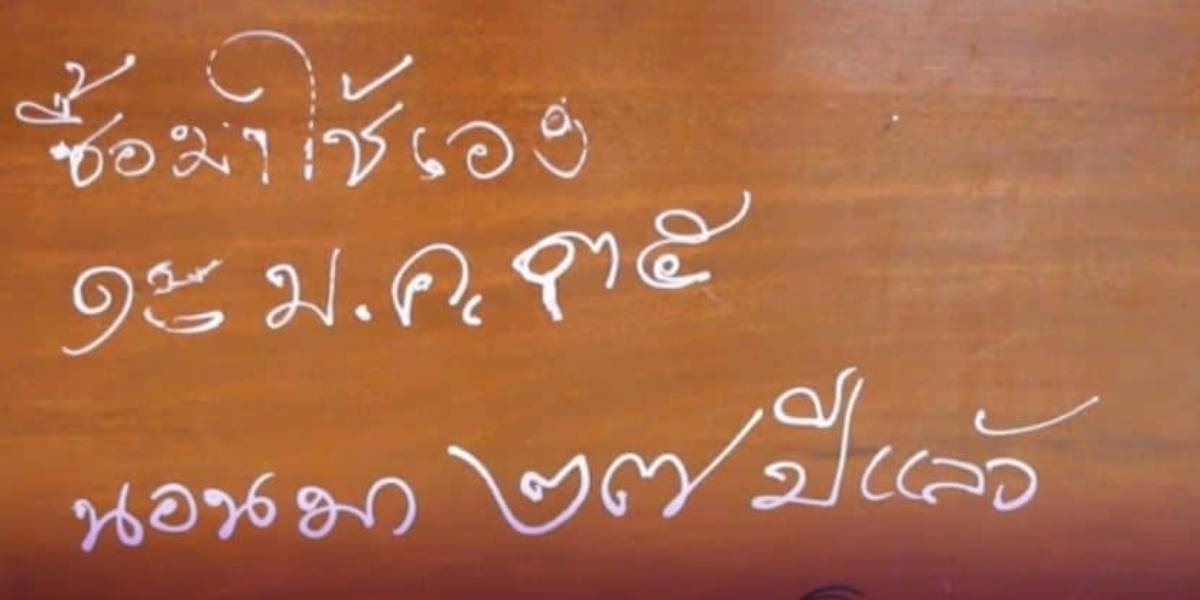 ซื้อมาใช้เอง
๑๘ ม.ค. ๓๕
นอนมา ๒๗ ปีแล้ว